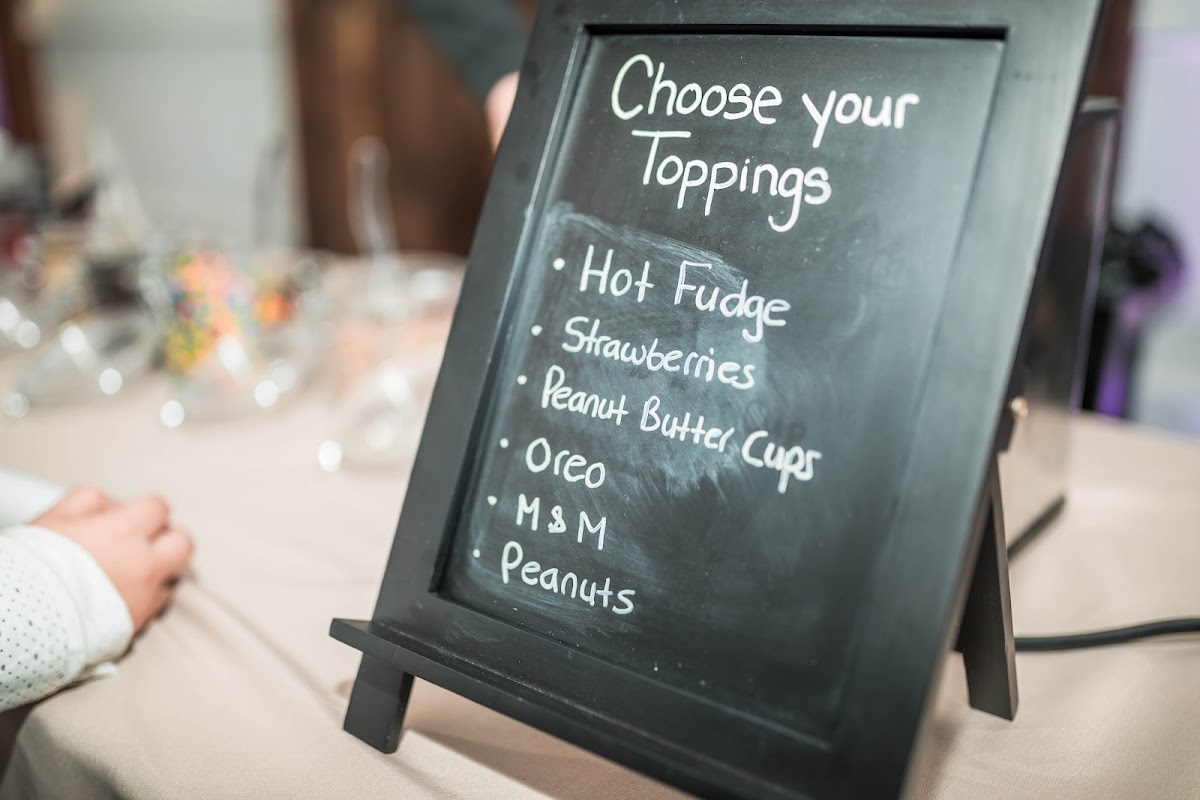 Choose your
Toppings
• Hot Fudge
• Strawberries
• Peanut Butter Cups
• Oreo
• M & M
• Peanuts